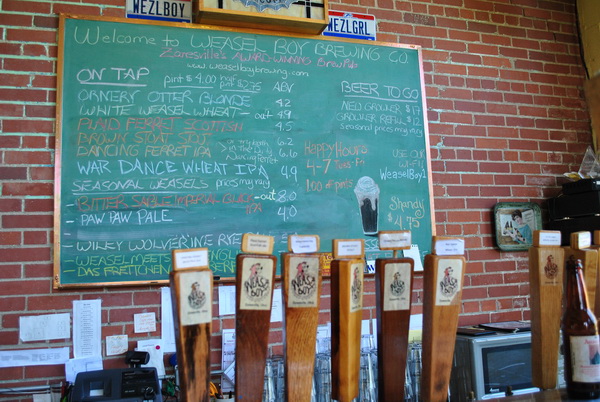 WEZLBOY
WEZLGRL
Welcome to WEASEL BOY BREWING CO.
Zanesville's AWARD-WINNING BrewPub
www.weaselboybrewing.com
ON TAP
pint $4.00 half pint $2.75 ABV
ORNERY OTTER BLONDE 4.2
WHITE WEASEL WHEAT - out 4.9
PLAID FERRET SCOTTISH 4.5
BROWN STOAT STOUT 6.2
DANCING FERRET IPA 6.6
WAR DANCE WHEAT IPA 4.9
SEASONAL WEASELS prices may vary
BITTER SABLE IMPERIAL BLACK IPA - out 8.0
- PAW PAW PALE 4.0
- WILEY WOLVERINE RYE
- WEASEL MEETS
- DAS FRETTCHEN
BEER TO GO
NEW GROWLER
GROWLER REFILL
seasonal prices may vary
Happy Hours
4-7
USE OUR
WI-FI
WeaselBoy2
Shandy
$4.75
WEASEL BOY